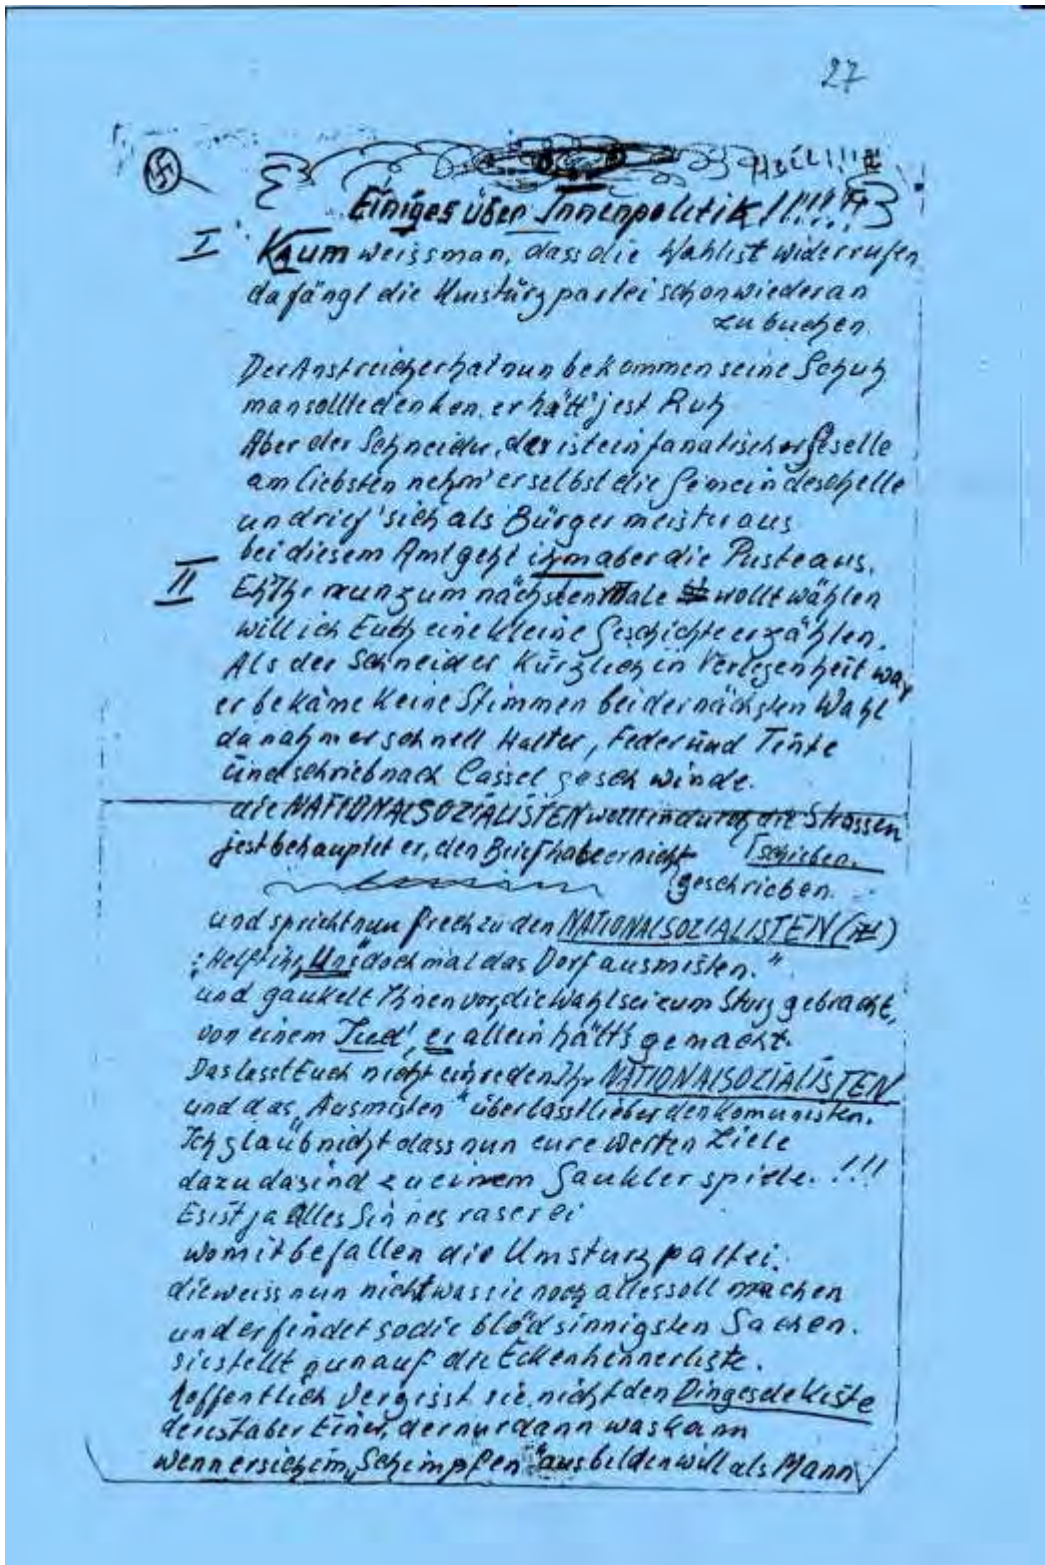 27
Heil!!!
Einiges über Innenpolitik!!!!!
I Kaum weiss man, dass die Wahl ist widerrufen
da fängt die Umsturzpartei schon wieder an
zu buchen.
Der Anstreicher hat nun bekommen seine Schuh
man sollte denken, er hätt' jest Ruh
Aber der Schneider, das ist ein fanatischer Geselle
am liebsten nehm' er selbst die Gemeindeschelle
und rief' sich als Bürgermeister aus
bei diesem Amt geht ihm aber die Puste aus.
II Eh Ihr nun zum nächsten Male wollt wählen
will ich Euch eine kleine Geschichte erzählen.
Als der Schneider kürzlich in Verlegenheit war
er bekäme keine Stimmen bei der nächsten Wahl
da nahm er schnell Halter, Feder und Tinte
und schrieb nach Cassel geschwinde.
die NATIONALSOZIALISTEN wollt in durch die Strassen
schieben.
jest behauptet er, den Brief habe er nicht
geschrieben.
und spricht nun frech zu den NATIONALSOZIALISTEN
"Helft ihr Uns doch mal das Dorf ausmisten."
und gaukelt Ihnen vor, die Wahl sei zum Sturz gebracht,
von einem Jud', er allein hätt's gemacht.
Das lasst Euch nicht einreden Ihr NATIONALSOZIALISTEN
und das "Ausmisten" überlasst lieber den Komunisten.
Ich glaub nicht dass nun eure werten Ziele
dazu da sind zu einem Gauklerspiele.!!!
Es ist ja Alles Sinnesraserei
womit befallen die Umsturzpartei.
die weiss nun nicht was sie noch alles soll machen
und erfindet so die blödsinnigsten Sachen.
sie stellt nun auf die Eckenhennerliste.
Hoffentlich vergisst sie nicht den Dingesdekiste
der ist aber Einer, der nur dann was kann
wenn er sich im "Schimpfen" ausbilden will als Mann